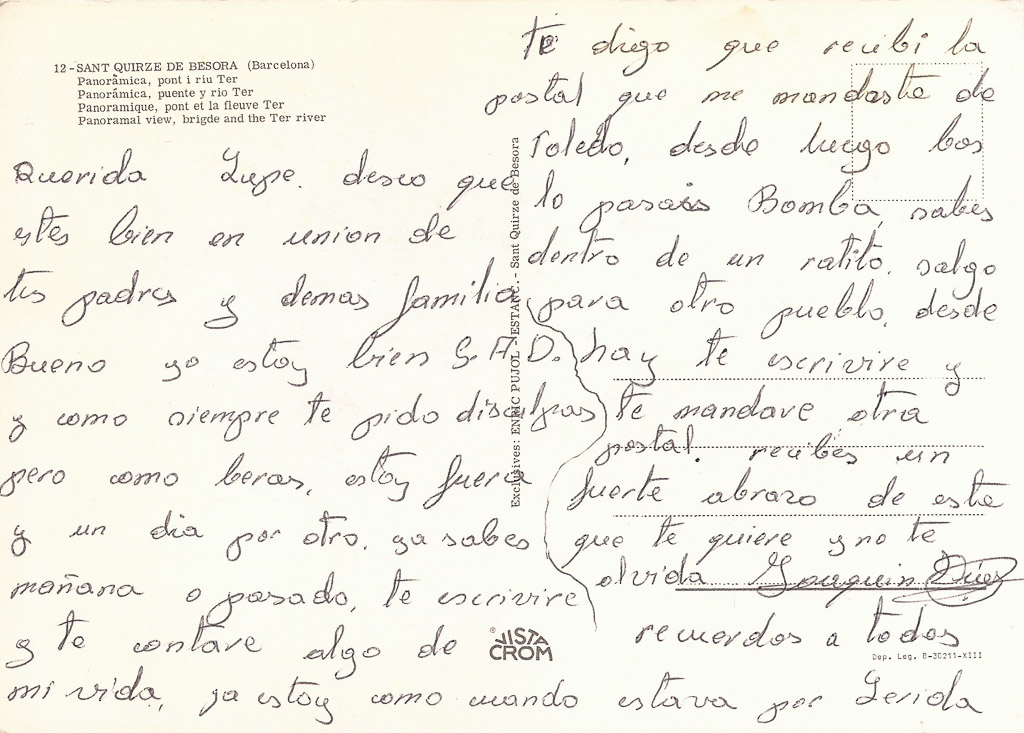 12 - SANT QUIRZE DE BESORA (Barcelona)
Panoràmica, pont i riu Ter
Panorámica, puente y rio Ter
Panoramique, pont et la fleuve Ter
Panoramal view, brigde and the Ter river
Querida Lupe. deseo que
estes bien en union de
tus padres y demas familia
Bueno yo estoy bien G. A. D.
y como siempre te pido disculpas
pero como beras, estoy fuera
y un dia por otro, ya sabes
mañana o pasado, te escrivire
y te contare algo de
mi vida, ya estoy como cuando estava por Lerida
Exclusives: ENRIC PUJOL - Sant Quirze de Besora
® VISTA
CROM
te digo que recibi la
postal que me mandaste de
Toledo, desde luego bos
lo pasais Bomba, sabes
dentro de un ratito, salgo
para otro pueblo, desde
hay te escrivire y
te mandave otra
postal. recibes un
fuerte abrazo de este
que te quiere y no te
olvida Joaquin Diez
recuerdos a todos
Dep. Leg. B-30211-XIII